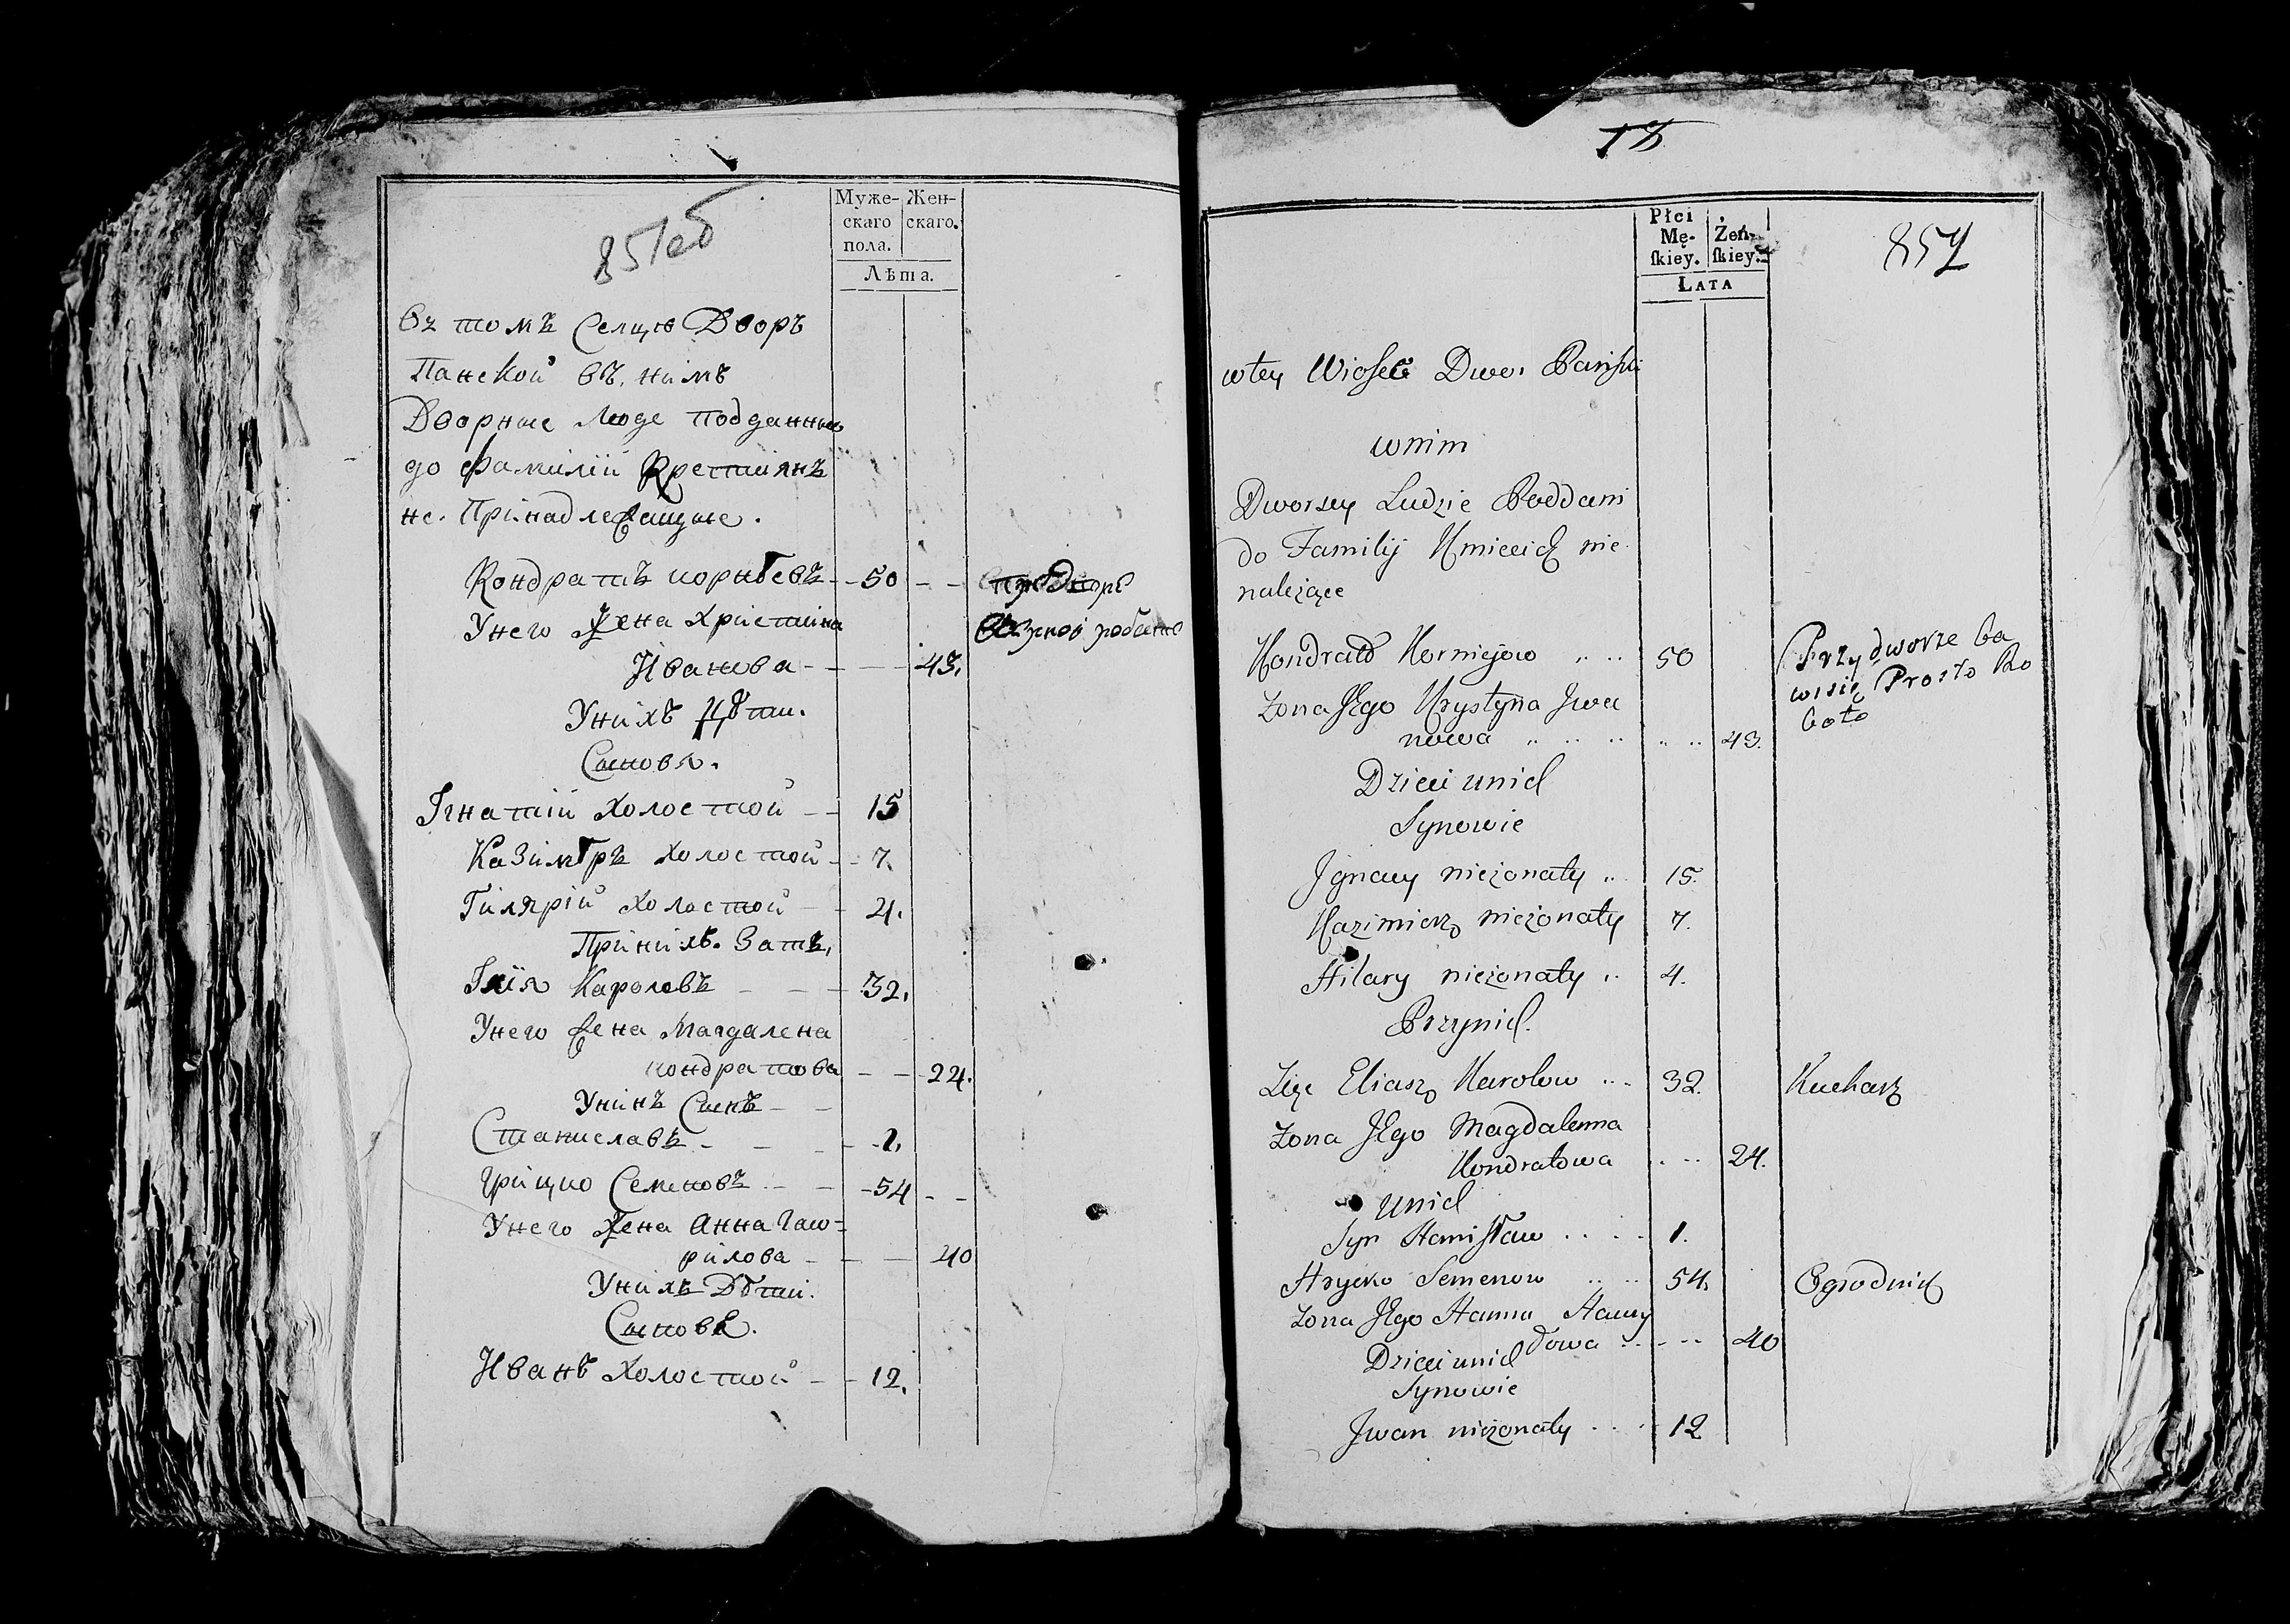 851об
Муже-
скаго
пола.
Жен-
скаго.
Лѣта.
въ томъ Селцѣ Дворъ
Панской въ нимъ
Дворные Люде подданные
до фамилій Крестиянъ
не Принадлежащие.
Кондратъ корнѣевъ - - 50 - -
Унего Жена Христина
Иванова - - - 43.
Унихъ Дѣти.
Сыновя.
Ігнатій Холостой - - 15
Казимѣръ Холостой - - 7.
Гілярій Холостой - - 4.
При нихъ Зять,
Ілія Каролевъ - - - 32.
Унего Жена Магдалена
кондратова - - 24.
Унихъ Сынъ - -
Станиславъ - - - - 1.
Грицко Семеновъ - - - 54 - -
Унего Жена Анна Гаw=
рилова - - - 40
Унихъ Дѣти.
Сыновя.
Иванъ Холостой - - 12.
18
852
Płci
Mę-
skiey.
Żeń-
skiey.
LATA
wtey Wiosce Dwor Pański
wnim
Dworscy Ludzie Poddani
do Familij Kmiecich nie
należące
Kondrat Korniejow .. .. 50
Przy dworze ba
wisię Prosto Ro
boto
Zona Jego Krystyna Jwa
nowa .. .. .. .. .. 43.
Dzieci unich
Synowie
Jgnacy nieżonaty .. 15.
Kazimierz nieżonaty 7.
Hilary nieżonaty .. 4.
Przynich.
Zięc Eliasz Karolow ... 32. Kucharz
Zona Jego Magdalenna
Kondratowa . .. 24.
unich
Syn Stanisław . . . . 1.
Hrycko Semenow .. .. 54. Ogrodnik
Zona Jego Hanna Hawry
łowa .. - .. 40
Dzieci unich
Synowie
Jwan nieżonaty . . . 12